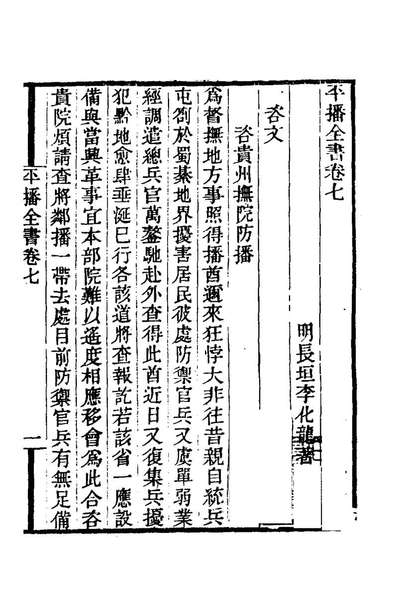 平播全書卷七
明長垣李化龍著
咨文
咨貴州撫院防播
為督撫地方事照得播酋邇來狂悖大非往昔親自統兵
屯劄於蜀綦地界擾害居民彼處防禦官兵又虞單弱業
經調遣總兵官萬鏊馳赴外查得此酋近日又復集兵擾
犯黔地愈肆垂涎已行各該道將查報訖若該省一應設
備與當興革事宜本部院難以遙度相應移會為此合咨
貴院煩請查將鄰播一帶去處目前防禦官兵有無足備
平播全書卷七
一